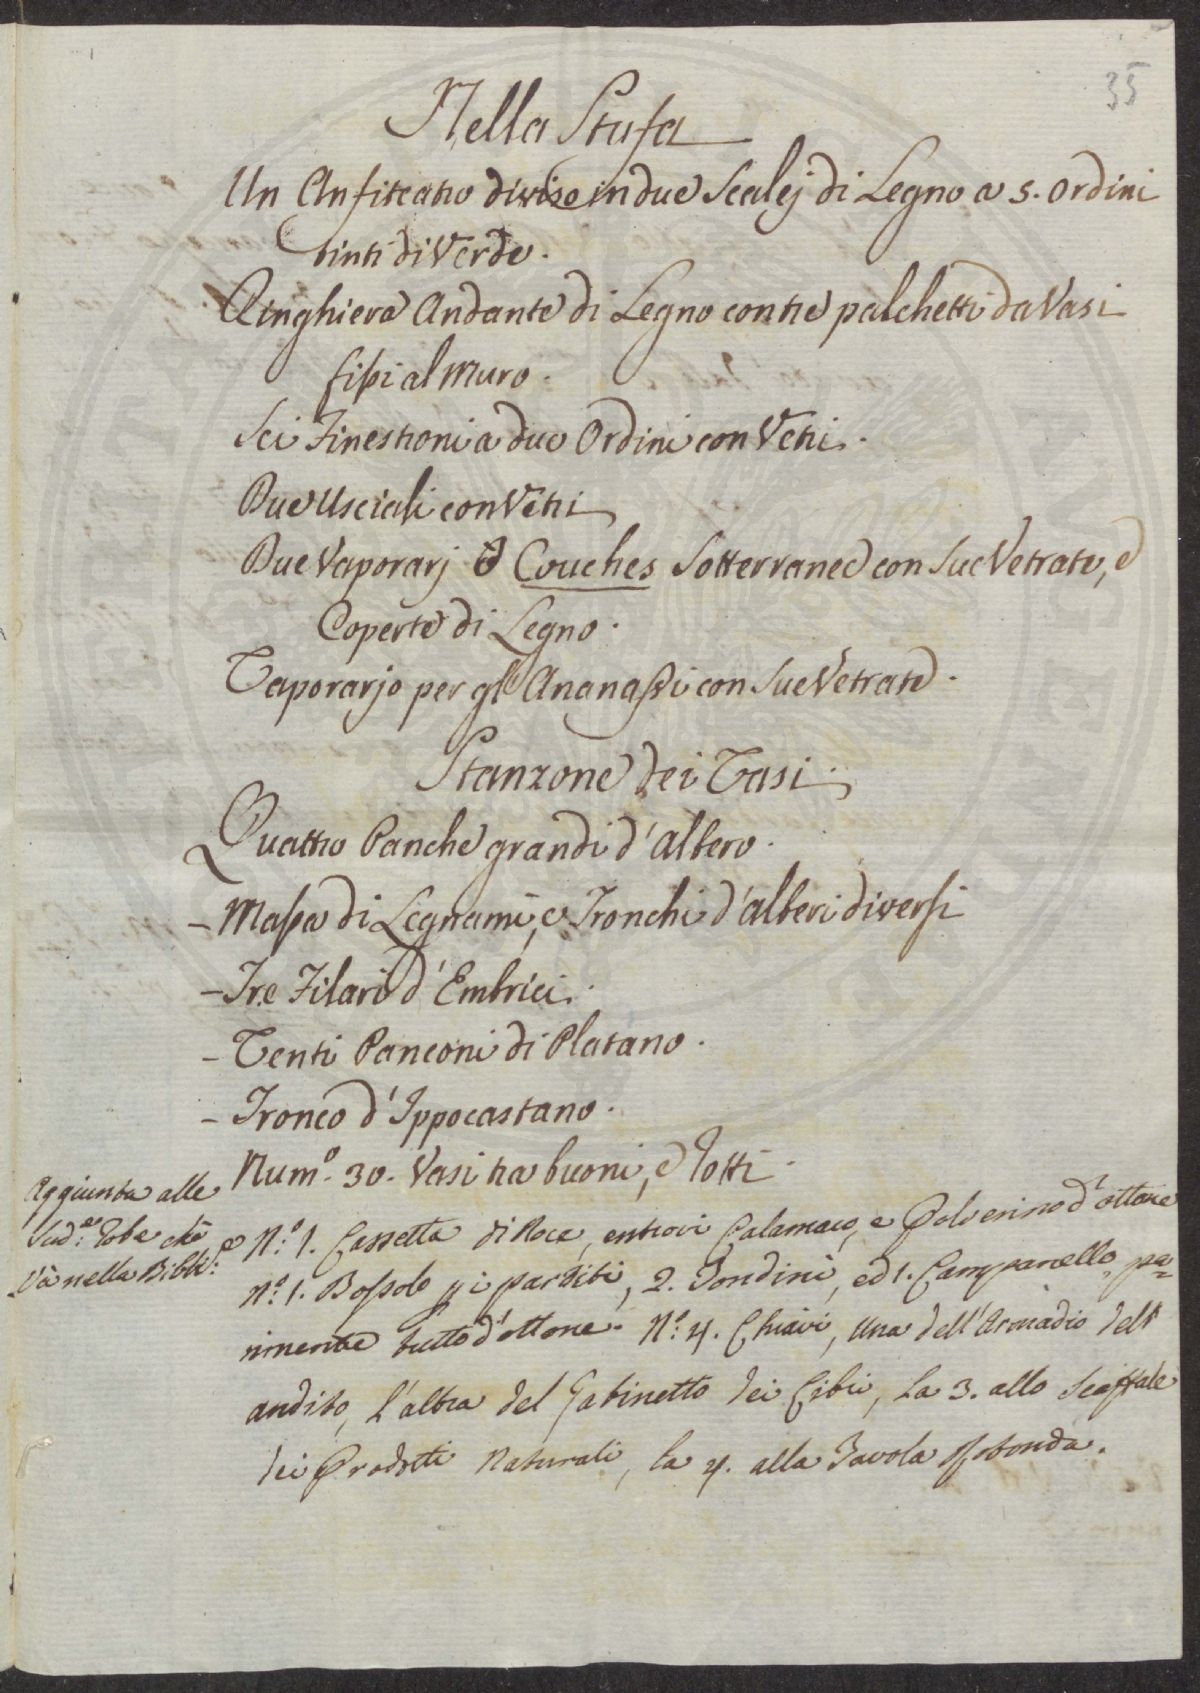 35
Nella Stufa
Un Anfiteatro diviso in due Scalej di Legno a 5. Ordini
tinti di Verde.
Ringhiera Andante di Legno con tre palchetti da Vasi
fissi al Muro.
Sei Finestroni a due Ordini con Vetri.
Due Usciali con Vetri
Due Vaporarj o Couches Sotterranee con sue Vetrate, e
Coperte di Legno.
Vaporarjo per gl'Ananassi con Sue Vetrate.
Stanzone dei Vasi.
Quattro Panche grandi d'albero.
- Massa di Legnami, e Tronchi d'alberi diversi
- Tre Filari d'Embrici.
- Venti Panconi di Platano.
- Tronco d'Ippocastano.
Num.o 30. Vasi tra buoni, e rotti.
Aggiunta alle
Sud.e Robe che
Và nella Bibli.
N.o 1. Cassetta di Noce, entrovi Calamaio, e Polverino d'ottone
N.o 1. Bossolo p i partiti, 2. Tondini, ed 1. Campanello, pa=
rimente tutto d'ottone. N.o 4. Chiavi, una dell'Armadio dell'
andito, l'altra del Gabinetto dei Cibi, La 3. allo Scaffale
dei Prodotti Naturali, la 4. alla Tavola Rotonda.